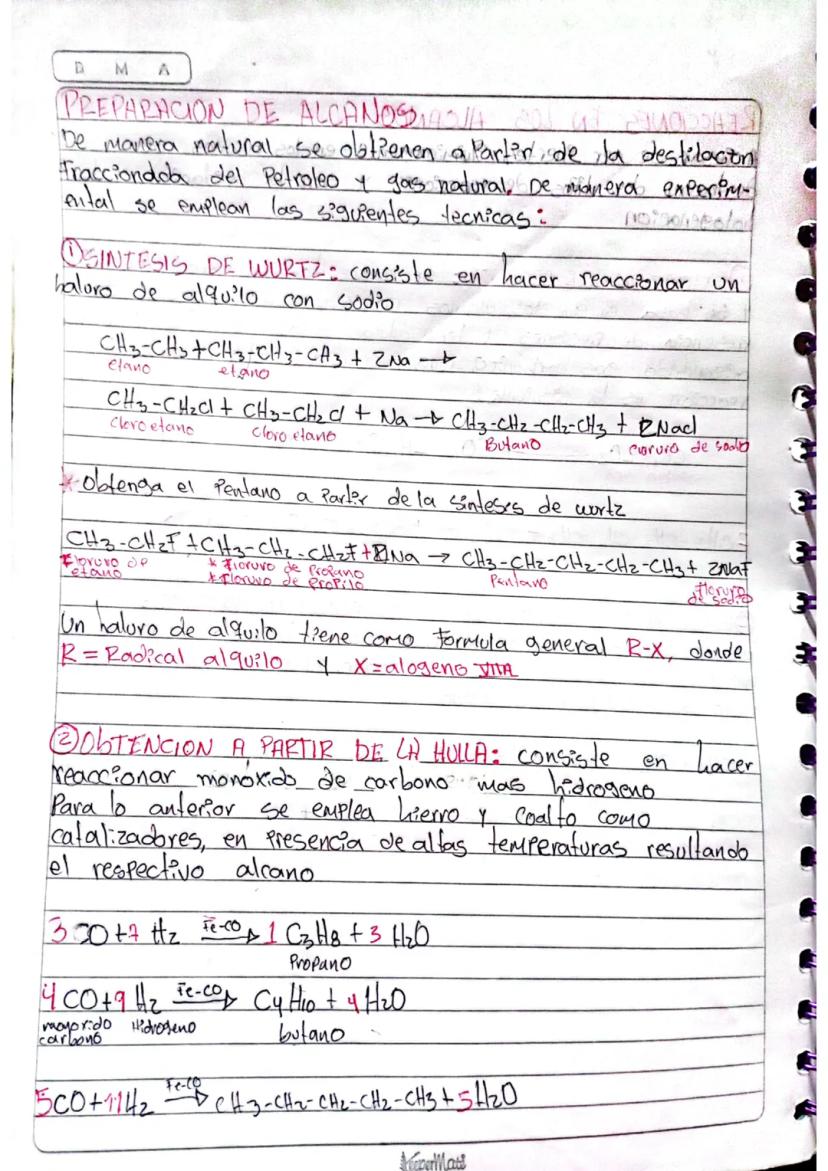 D M A
PREPARACION DE ALCANOS
De manera natural se obtienen a Partir de la destilacion
fraccionada del Petroleo y gas natural. De manera experim-
ental se emplean las siguientes tecnicas:
① SINTESIS DE WURTZ: consiste en hacer reaccionar un
haluro de alquilo con sodio
CH3-CH3 + CH3-CH3-CH3 + 2Na →
etano etano
CH3-CH2Cl + CH3-CH2Cl + Na → CH3-CH2-CH2-CH3 + 2NaCl
Cloro etano Cloro etano Butano cloruro de sodio
* Obtenga el Pentano a Partir de la sintesis de wurtz
CH3-CH2F + CH3-CH2-CH2F + 2Na → CH3-CH2-CH2-CH2-CH3 + 2NaF
Floruro de * Floruro de Propano Pentano floruro
etano * Floruro de Propilo de sodio
Un haluro de alquilo tiene como formula general R-X, donde
R = Radical alquilo y X = alogeno VIIA
② ObTENCION A PARTIR DE LA HULLA: consiste en hacer
reaccionar monóxido de carbono mas hidrogeno
Para lo anterior se emplea hierro y coalto como
catalizadores, en Presencia de altas temperaturas resultando
el respectivo alcano
3 CO + 7 H2 Fe-CO → 1 C3H8 + 3 H2O
Propano
4 CO + 9 H2 Fe-CO → C4H10 + 4 H2O
Hidrogeno butano
carbono
5CO + 11H2 Fe-CO → CH3-CH2-CH2-CH2-CH3 + 5H2O
KeeperMate